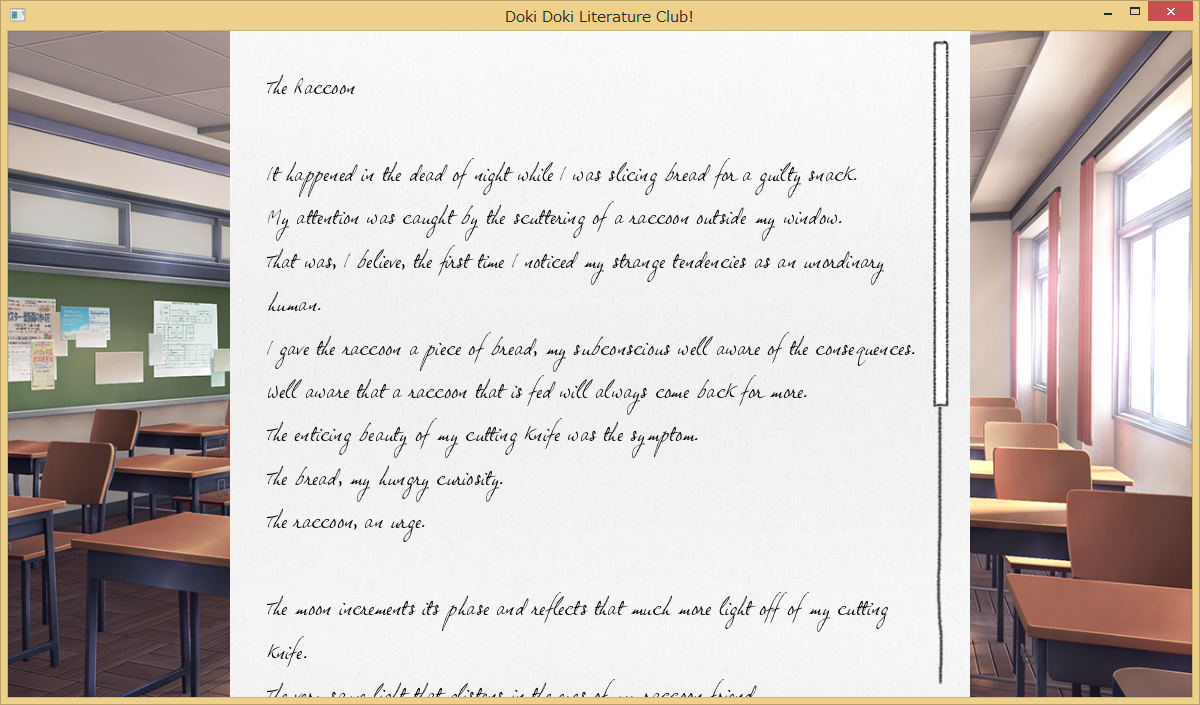 Doki Doki Literature Club!
The Raccoon
It happened in the dead of night while I was slicing bread for a guilty snack.
My attention was caught by the scuttering of a raccoon outside my window.
That was, I believe, the first time I noticed my strange tendencies as an unordinary
human.
I gave the raccoon a piece of bread, my subconscious well aware of the consequences.
Well aware that a raccoon that is fed will always come back for more.
The enticing beauty of my cutting knife was the symptom.
The bread, my hungry curiosity.
The raccoon, an urge.
The moon increments its phase and reflects that much more light off of my cutting
knife.
The very same light that glistens in the eyes of my raccoon friend.